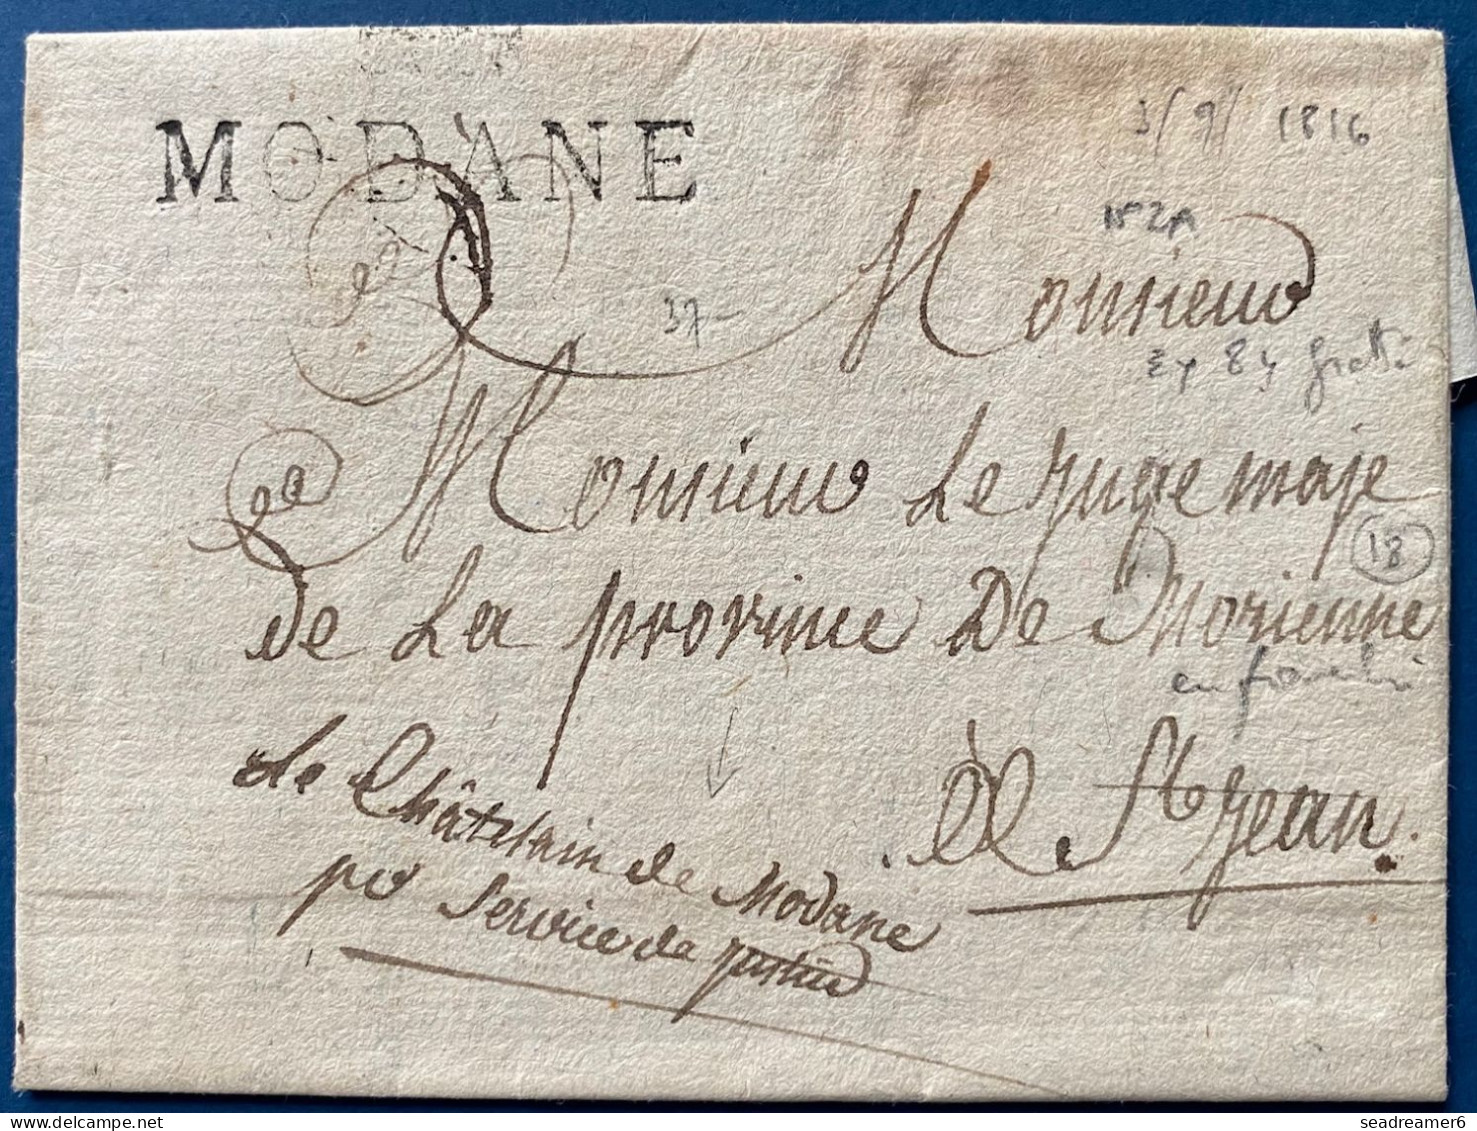 MODANE
3/9/1816
N°2A
37-
Monsieur
Monsieur Le Juge maje
18
de La province De Morienne
en franchi
à St Jean.
Le Châtelain de Modane
pr Service de justice
www.delcampe.net
seadreamer6